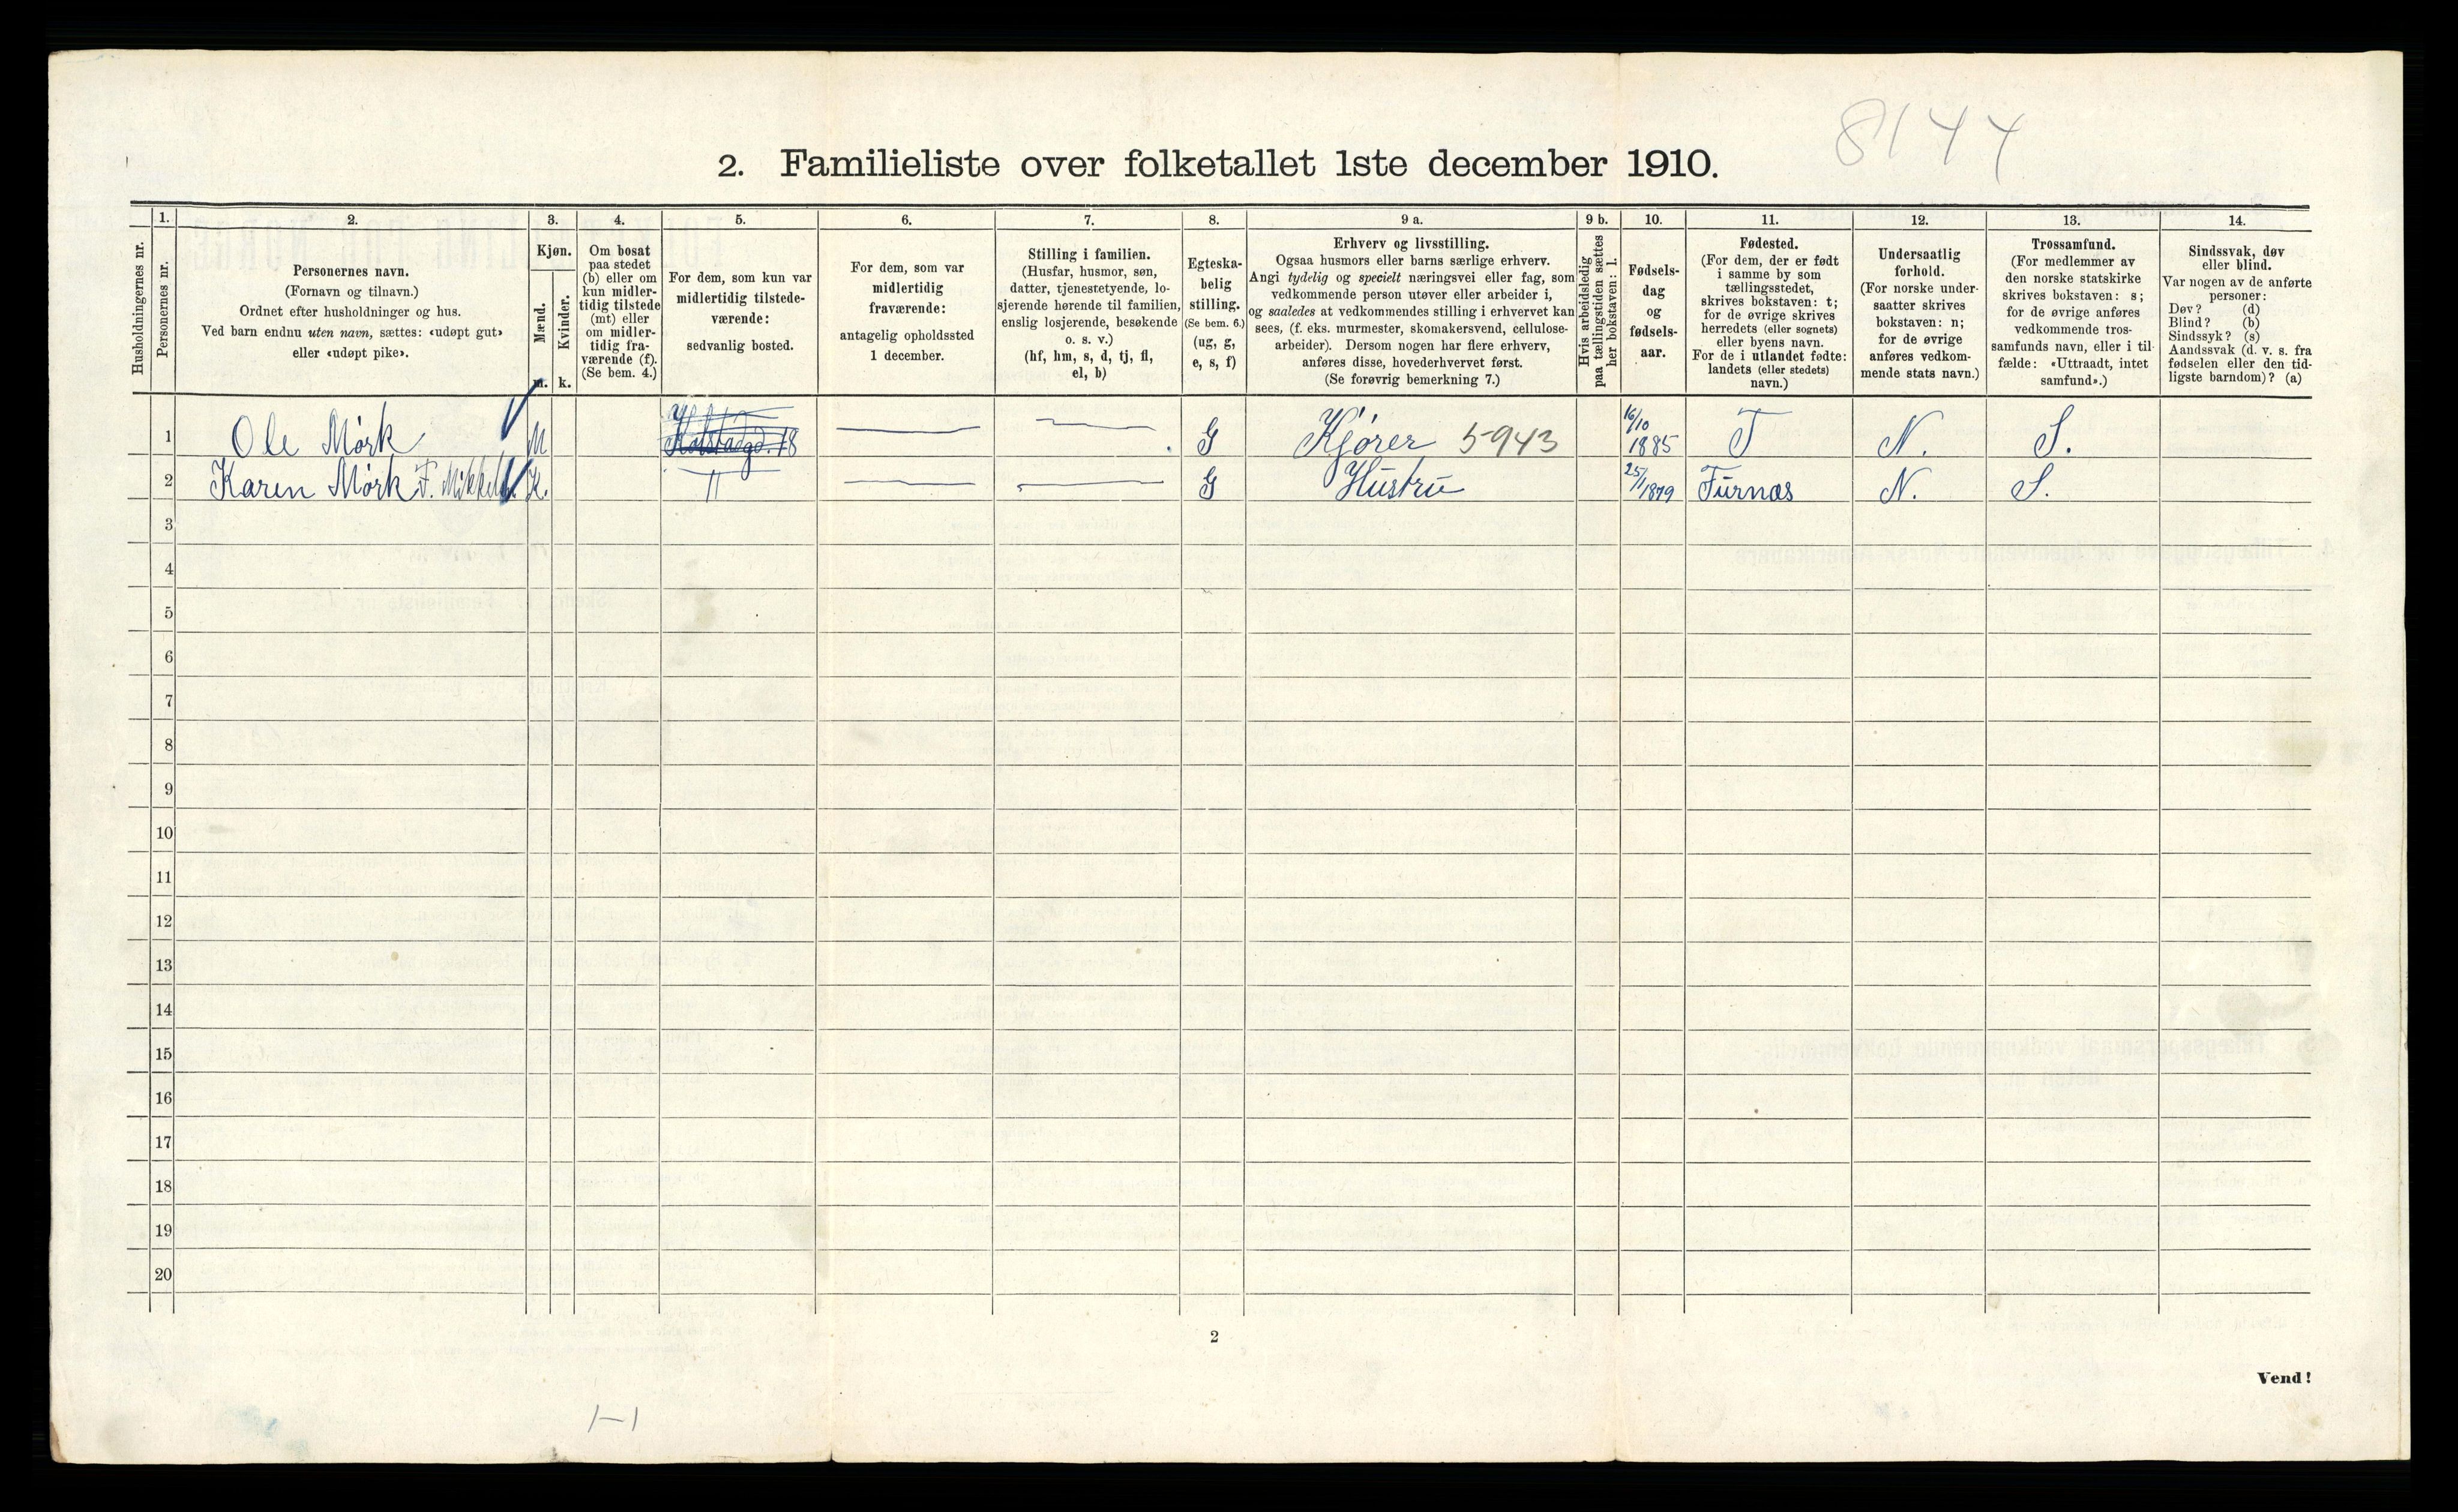 8144
2. Familieliste over folketallet 1ste december 1910.
Husholdningernes nr.
1.
Personernes nr.
2.
Personernes navn.
(Fornavn og tilnavn.)
Ordnet efter husholdninger og hus.
Ved barn endnu uten navn, sættes: «udøpt gut»
eller «udøpt pike».
3.
Kjøn.
Mænd.
Kvinder.
m. k.
4.
Om bosat
paa stedet
(b) eller om
kun midler-
tidig tilstede
(mt) eller
om midler-
tidig fra-
værende (f).
(Se bem. 4.)
5.
For dem, som kun var
midlertidig tilstede-
værende:
sedvanlig bosted.
6.
For dem, som var
midlertidig
fraværende:
antagelig opholdssted
1 december.
7.
Stilling i familien.
(Husfar, husmor, søn,
datter, tjenestetyende, lo-
sjerende hørende til familien,
enslig losjerende, besøkende
o. s. v.)
(hf, hm, s, d, tj, fl,
el, b)
8.
Egteska-
belig
stilling.
(Se bem. 6.)
(ug, g,
e, s, f)
9 a.
Erhverv og livsstilling.
Ogsaa husmors eller barns særlige erhverv.
Angi tydelig og specielt næringsvei eller fag, som
vedkommende person utøver eller arbeider i,
og saaledes at vedkommendes stilling i erhvervet kan
sees, (f. eks. murmester, skomakersvend, cellulose-
arbeider). Dersom nogen har flere erhverv,
anføres disse, hovederhvervet først.
(Se forøvrig bemerkning 7.)
9 b.
Hvis arbeidsledig
paa tællingstiden sættes
her bokstaven: l.
10.
Fødsels-
dag
og
fødsels-
aar.
11.
Fødested.
(For dem, der er født
i samme by som
tællingsstedet,
skrives bokstaven: t;
for de øvrige skrives
herredets (eller sognets)
eller byens navn.
For de i utlandet fødte:
landets (eller stedets)
navn.)
12.
Undersaatlig
forhold.
(For norske under-
saatter skrives
bokstaven: n;
for de øvrige
anføres vedkom-
mende stats navn.)
13.
Trossamfund.
(For medlemmer av
den norske statskirke
skrives bokstaven: s;
for de øvrige anføres
vedkommende tros-
samfunds navn, eller i til-
fælde: «Uttraadt, intet
samfund».)
14.
Sindssvak, døv
eller blind.
Var nogen av de anførte
personer:
Døv? (d)
Blind? (b)
Sindssyk? (s)
Aandssvak (d. v. s. fra
fødselen eller den tid-
ligste barndom)? (a)
1 Ole Mørk M 18 G Kjører 5943 16/10 1885 T N. S.
2 Karen Mørk F. K. " G Hustru 25/1 1879 Furnæs N. S.
3
4
5
6
7
8
9
10
11
12
13
14
15
16
17
18
19
20
2
Vend!
1-1